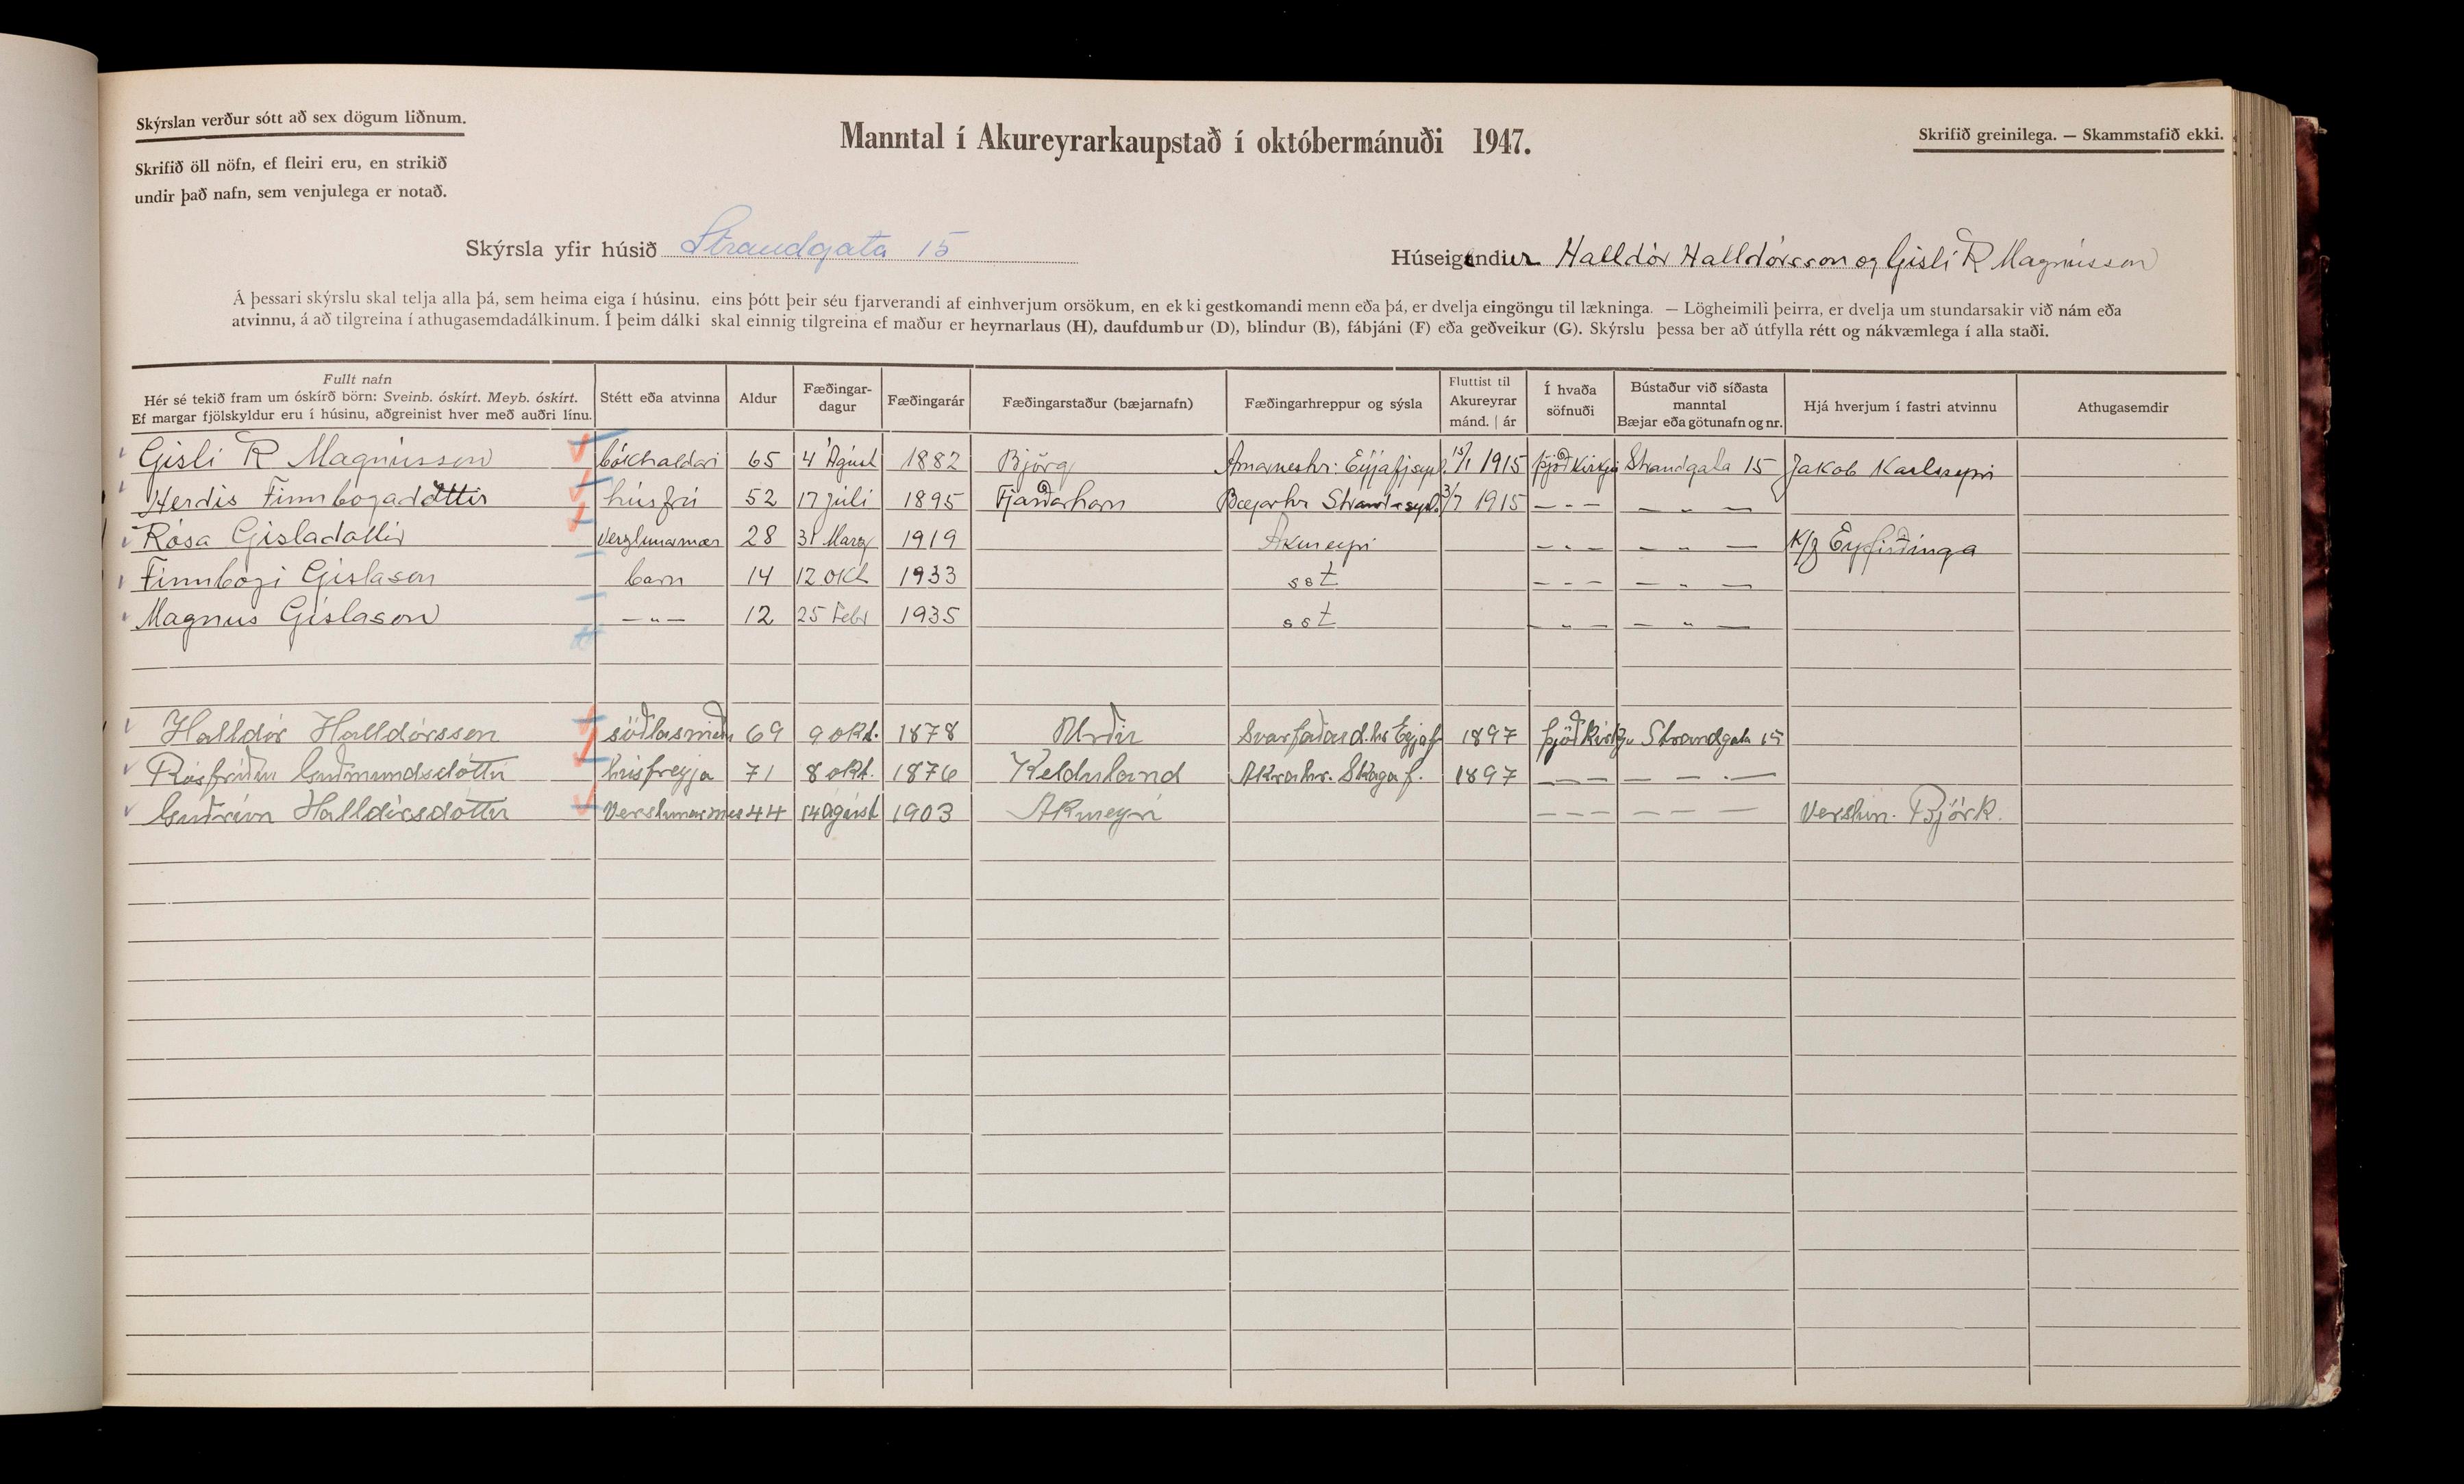 Skýrslan verður sótt að sex dögum liðnum.
Skrifið öll nöfn, ef fleiri eru, en strikið
undir það nafn, sem venjulega er notað.
Manntal í Akureyrarkaupstað í októbermánuði 1947.
Skrifið greinilega. — Skammstafið ekki.
Skýrsla yfir húsið Strandgata 15
Húseigendur Halldór Halldórsson og Gísli R Magnússon
Á þessari skýrslu skal telja alla þá, sem heima eiga í húsinu, eins þótt þeir séu fjarverandi af einhverjum orsökum, en ekki gestkomandi menn eða þá, er dvelja eingöngu til lækninga. — Lögheimili þeirra, er dvelja um stundarsakir við nám eða
atvinnu, á að tilgreina í athugasemdadálkinum. Í þeim dálki skal einnig tilgreina ef maður er heyrnarlaus (H), daufdumbur (D), blindur (B), fábjáni (F) eða geðveikur (G). Skýrslu þessa ber að útfylla rétt og nákvæmlega í alla staði.
Fullt nafn
Hér sé tekið fram um óskírð börn: Sveinb. óskírt. Meyb. óskírt.
Ef margar fjölskyldur eru í húsinu, aðgreinist hver með auðri línu.
Stétt eða atvinna
Aldur
Fæðingar-
dagur
Fæðingarár
Fæðingarstaður (bæjarnafn)
Fæðingarhreppur og sýsla
Fluttist til
Akureyrar
mánd. | ár
Í hvaða
söfnuði
Bústaður við síðasta
manntal
Bæjar eða götunafn og nr.
Hjá hverjum í fastri atvinnu
Athugasemdir
Gísli R Magnússon bókhaldari 65 4 Ágúst 1882 Björg Arnarneshr: Eyjafjsysl. 15/1 1915 Þjóðkirkju Strandgata 15 Jakob Karlssyni
Herdís Finnbogadóttir húsfrú 52 17 júli 1895 Fjarðarhorn Bæjarhr Strandasysl. 3/7 1915 — - — — „ —
Rósa Gísladóttir Verzlunarmær 28 31 Marz 1919 Akureyri — - — — „ — K/f Eyfirðinga
Finnbogi Gíslason barn 14 12 Okt 1933 sst — - — — „ —
Magnus Gíslason — „ — 12 25 Febr 1935 sst — „ — — „ —
Halldór Halldórsson söðlasmiður 69 9 okt. 1878 Urðir Svarfaðard.hr Eyjaf 1897 Þjóðkirkju Strandgata 15
Rósfríður Guðmundsdóttir húsfreyja 71 8 okt. 1876 Helduland Akrahr. Skagaf. 1897 — — — — —
Guðrún Halldórsdóttir Verslunarmær 44 14 ágúst 1903 Akureyri — — — — — — Verslun. Björk.